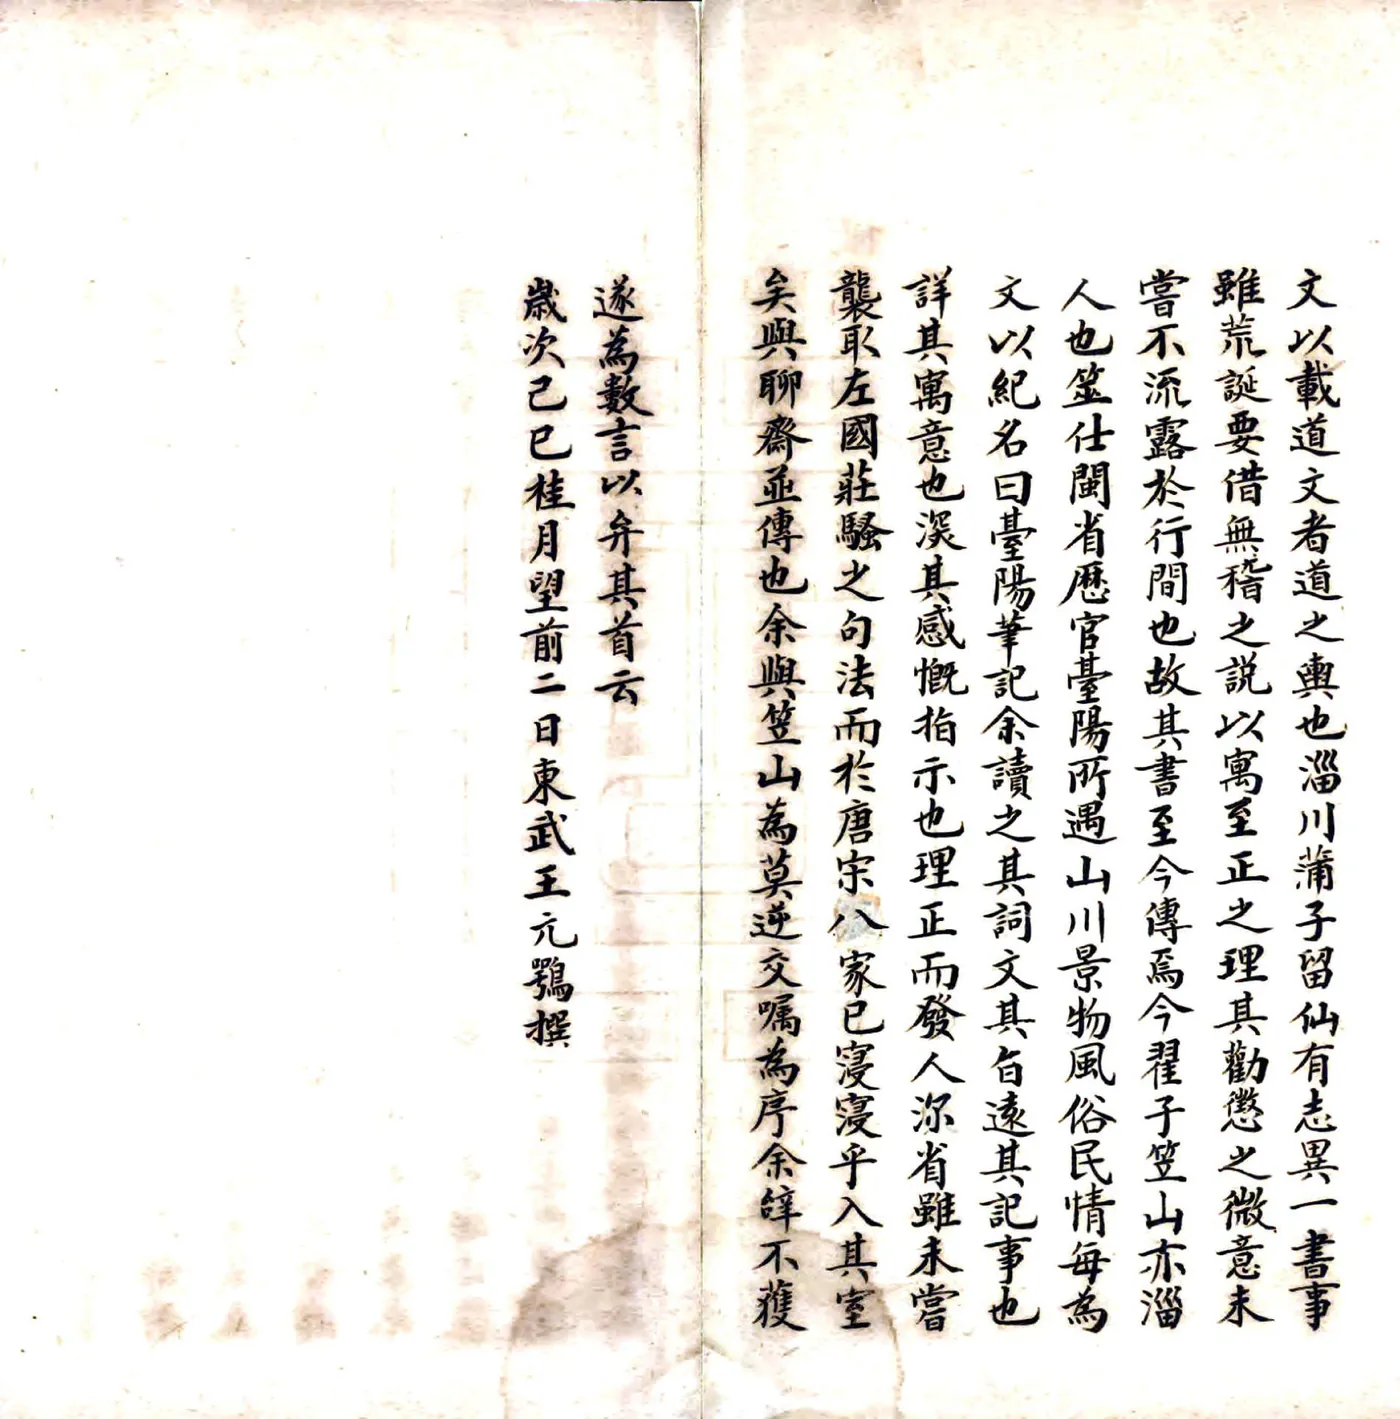 文以載道文者道之輿也淄川蒲子留仙有志異一書事
雖荒誕要借無稽之説以寓至正之理其勸懲之微意未
嘗不流露於行間也故其書至今傳焉今翟子笠山亦淄
人也筮仕閩省歷官臺陽所遇山川景物風俗民情每為
文以紀名曰臺陽筆記余讀之其詞文其旨遠其記事也
詳其寓意也深其感慨指示也理正而發人深省雖未嘗
襲取左國莊騷之句法而於唐宗八家已寖寖乎入其室
矣與聊齋並傳也余與笠山為莫逆交嘱為序余辤不獲
遂為數言以弁其首云
嵗次己巳桂月望前二日東武王元鶚撰